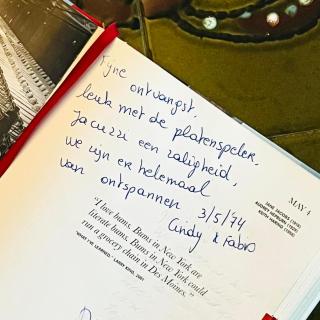 Fijne ontvangst,
leuk met de platenspeler,
Jacuzzi een zaligheid,
we zijn er helemaal
van ontspannen
3/5/'24
Cindy & Fabio
MAY 4
JANE JACOBS (1916)
AUDREY HEPBURN (1929)
KEITH HARING (1958)
"I love bums. Bums in New York are
literate bums. Bums in New York could
run a grocery chain in Des Moines."
"WHAT I'VE LEARNED," LARRY KING, 2001